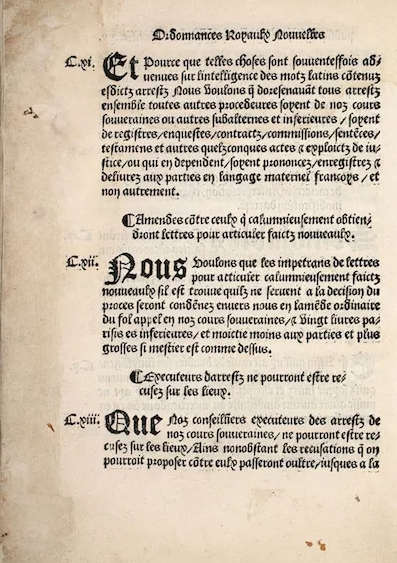 Ordonnances Royaulx Nouuelles
C.xi. Et Pource que telles choses sont souuenteffois ad-
uenues sur lintelligence des motz latins cõtenuz
esdictz arrestz Nous voulons q̃ doresenauãt tous arrestz
ensemble toutes autres procedeures soyent de noz cours
souueraines ou autres subalternes et inferieures / soyent
de registres/enquestes/contractz/commissions/sentẽces/
testamens et autres quelzconques actes ⁊ exploictz de iu-
stice/ou qui en dependent/soyent prononcez/enregistrez ⁊
deliurez aux parties en langage maternel francoys/ et
non autrement.
¶Amendes cõtre ceulx q̃ calumnieusement obtien-
dront lettres pour articuler faictz nouueaulx.
C.xii. Nous voulons que les impetrans de lettres
pour articuler calumnieusement faictz
nouueaulx sil est trouue quilz ne seruent a la decision du
proces seront condẽnez enuers nous en lamẽde ordinaire
du fol appel en noz cours souueraines/⁊ vingt liures pa-
risis es inferieures/et moictie moins aux parties et plus
grosses si mestier est comme dessus.
¶Executeurs darrestz ne pourront estre re-
cusez sur les lieux.
C.xiii. Que Noz conseilliers executeurs des arrestz de
noz cours souueraines/ ne pourront estre re-
cusez sur les lieux/Ains nonobstant les recusations q̃ on
pourroit proposer cõtre eulx passeront oultre/iusques a la